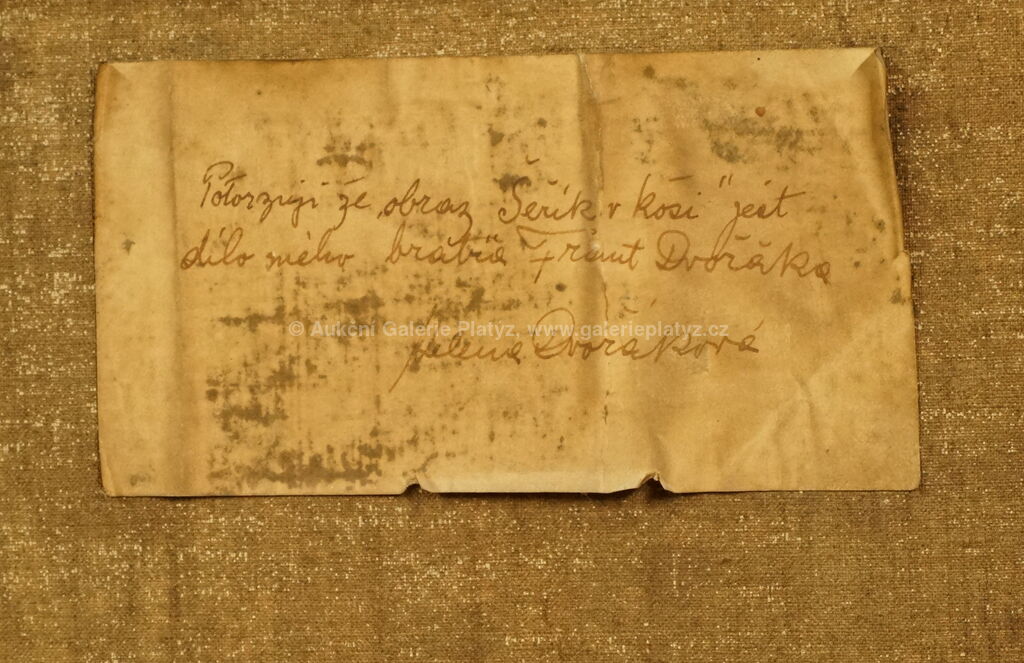 Potvrzuji že „obraz Šeřík v koši" jest
dílo mého bratra Frant Dvořáka
Helena Dvořáková
© Aukční Galerie Platýz, www.galerieplatyz.cz